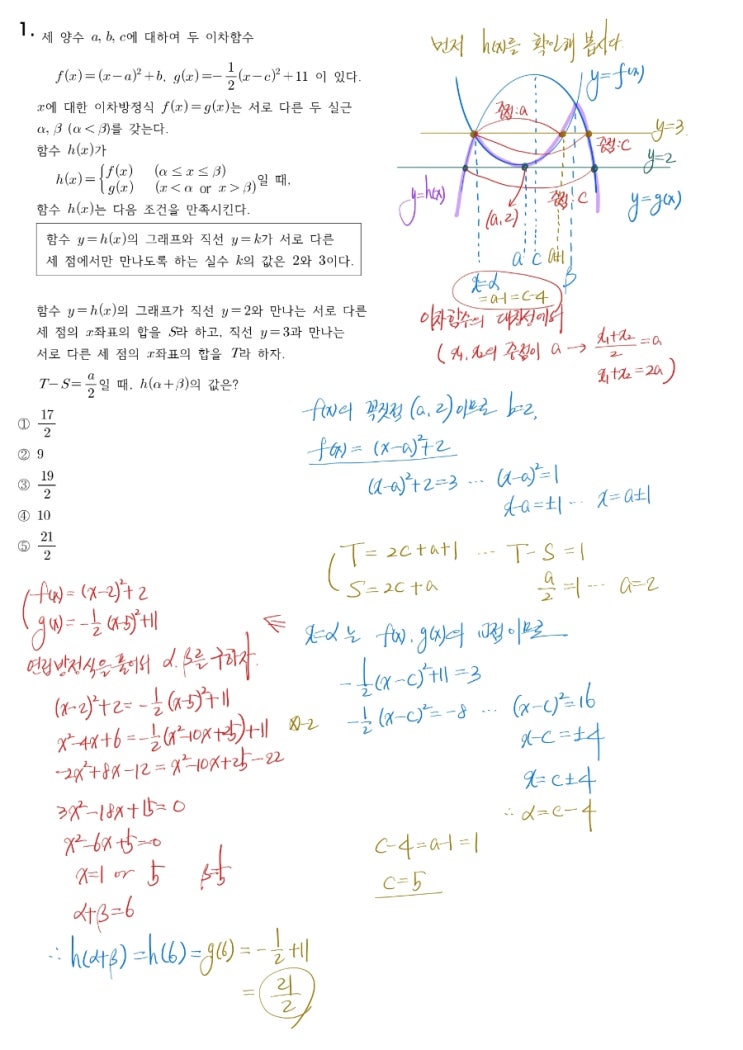 1. 세 양수 a, b, c에 대하여 두 이차함수
f(x)=(x-a)²+b, g(x)=-1/2(x-c)²+11 이 있다.
x에 대한 이차방정식 f(x)=g(x)는 서로 다른 두 실근
α, β (α<β)를 갖는다.
함수 h(x)가
h(x)={f(x) (α≤x≤β)
g(x) (x<α or x>β) 일 때,
함수 h(x)는 다음 조건을 만족시킨다.
함수 y=h(x)의 그래프와 직선 y=k가 서로 다른
세 점에서만 만나도록 하는 실수 k의 값은 2와 3이다.
함수 y=h(x)의 그래프가 직선 y=2와 만나는 서로 다른
세 점의 x좌표의 합을 S라 하고, 직선 y=3과 만나는
서로 다른 세 점의 x좌표의 합을 T라 하자.
T-S=a/2일 때, h(α+β)의 값은?
① 17/2
② 9
③ 19/2
④ 10
⑤ 21/2
먼저 h(x)를 확인해 봅시다
y=f(x)
중점:a
y=3.
중점:C
y=2
y=h(x)
(a,2)
중점:C
y=g(x)
a c a+1 β
x=α
=a-1=c-4
이차함수의 대칭성에서
(x₁, x₂의 중점이 a → (x₁+x₂)/2=a
x₁+x₂=2a)
f(x)의 꼭짓점 (a,2)이므로 b=2,
f(x)=(x-a)²+2
(x-a)²+2=3 … (x-a)²=1
x-a=±1 … x=a±1
T=2c+a+1 … T-S=1
S=2c+a a/2=1 … a=2
x=α는 f(x), g(x)의 교점이므로
-1/2(x-c)²+11=3
-1/2(x-c)²=-8 … (x-c)²=16
x-c=±4
x=c±4
∴ α=c-4
c-4=a-1=1
c=5
f(x)=(x-2)²+2
g(x)=-1/2(x-5)²+11
연립방정식을 풀어서 α, β를 구하자.
(x-2)²+2=-1/2(x-5)²+11
x²-4x+6=-1/2(x²-10x+25)+11 ×-2
-2x²+8x-12=x²-10x+25-22
3x²-18x+15=0
x²-6x+5=0
x=1 or 5 β=5
α+β=6
∴ h(α+β)=h(6)=g(6)=-1/2+11
=21/2